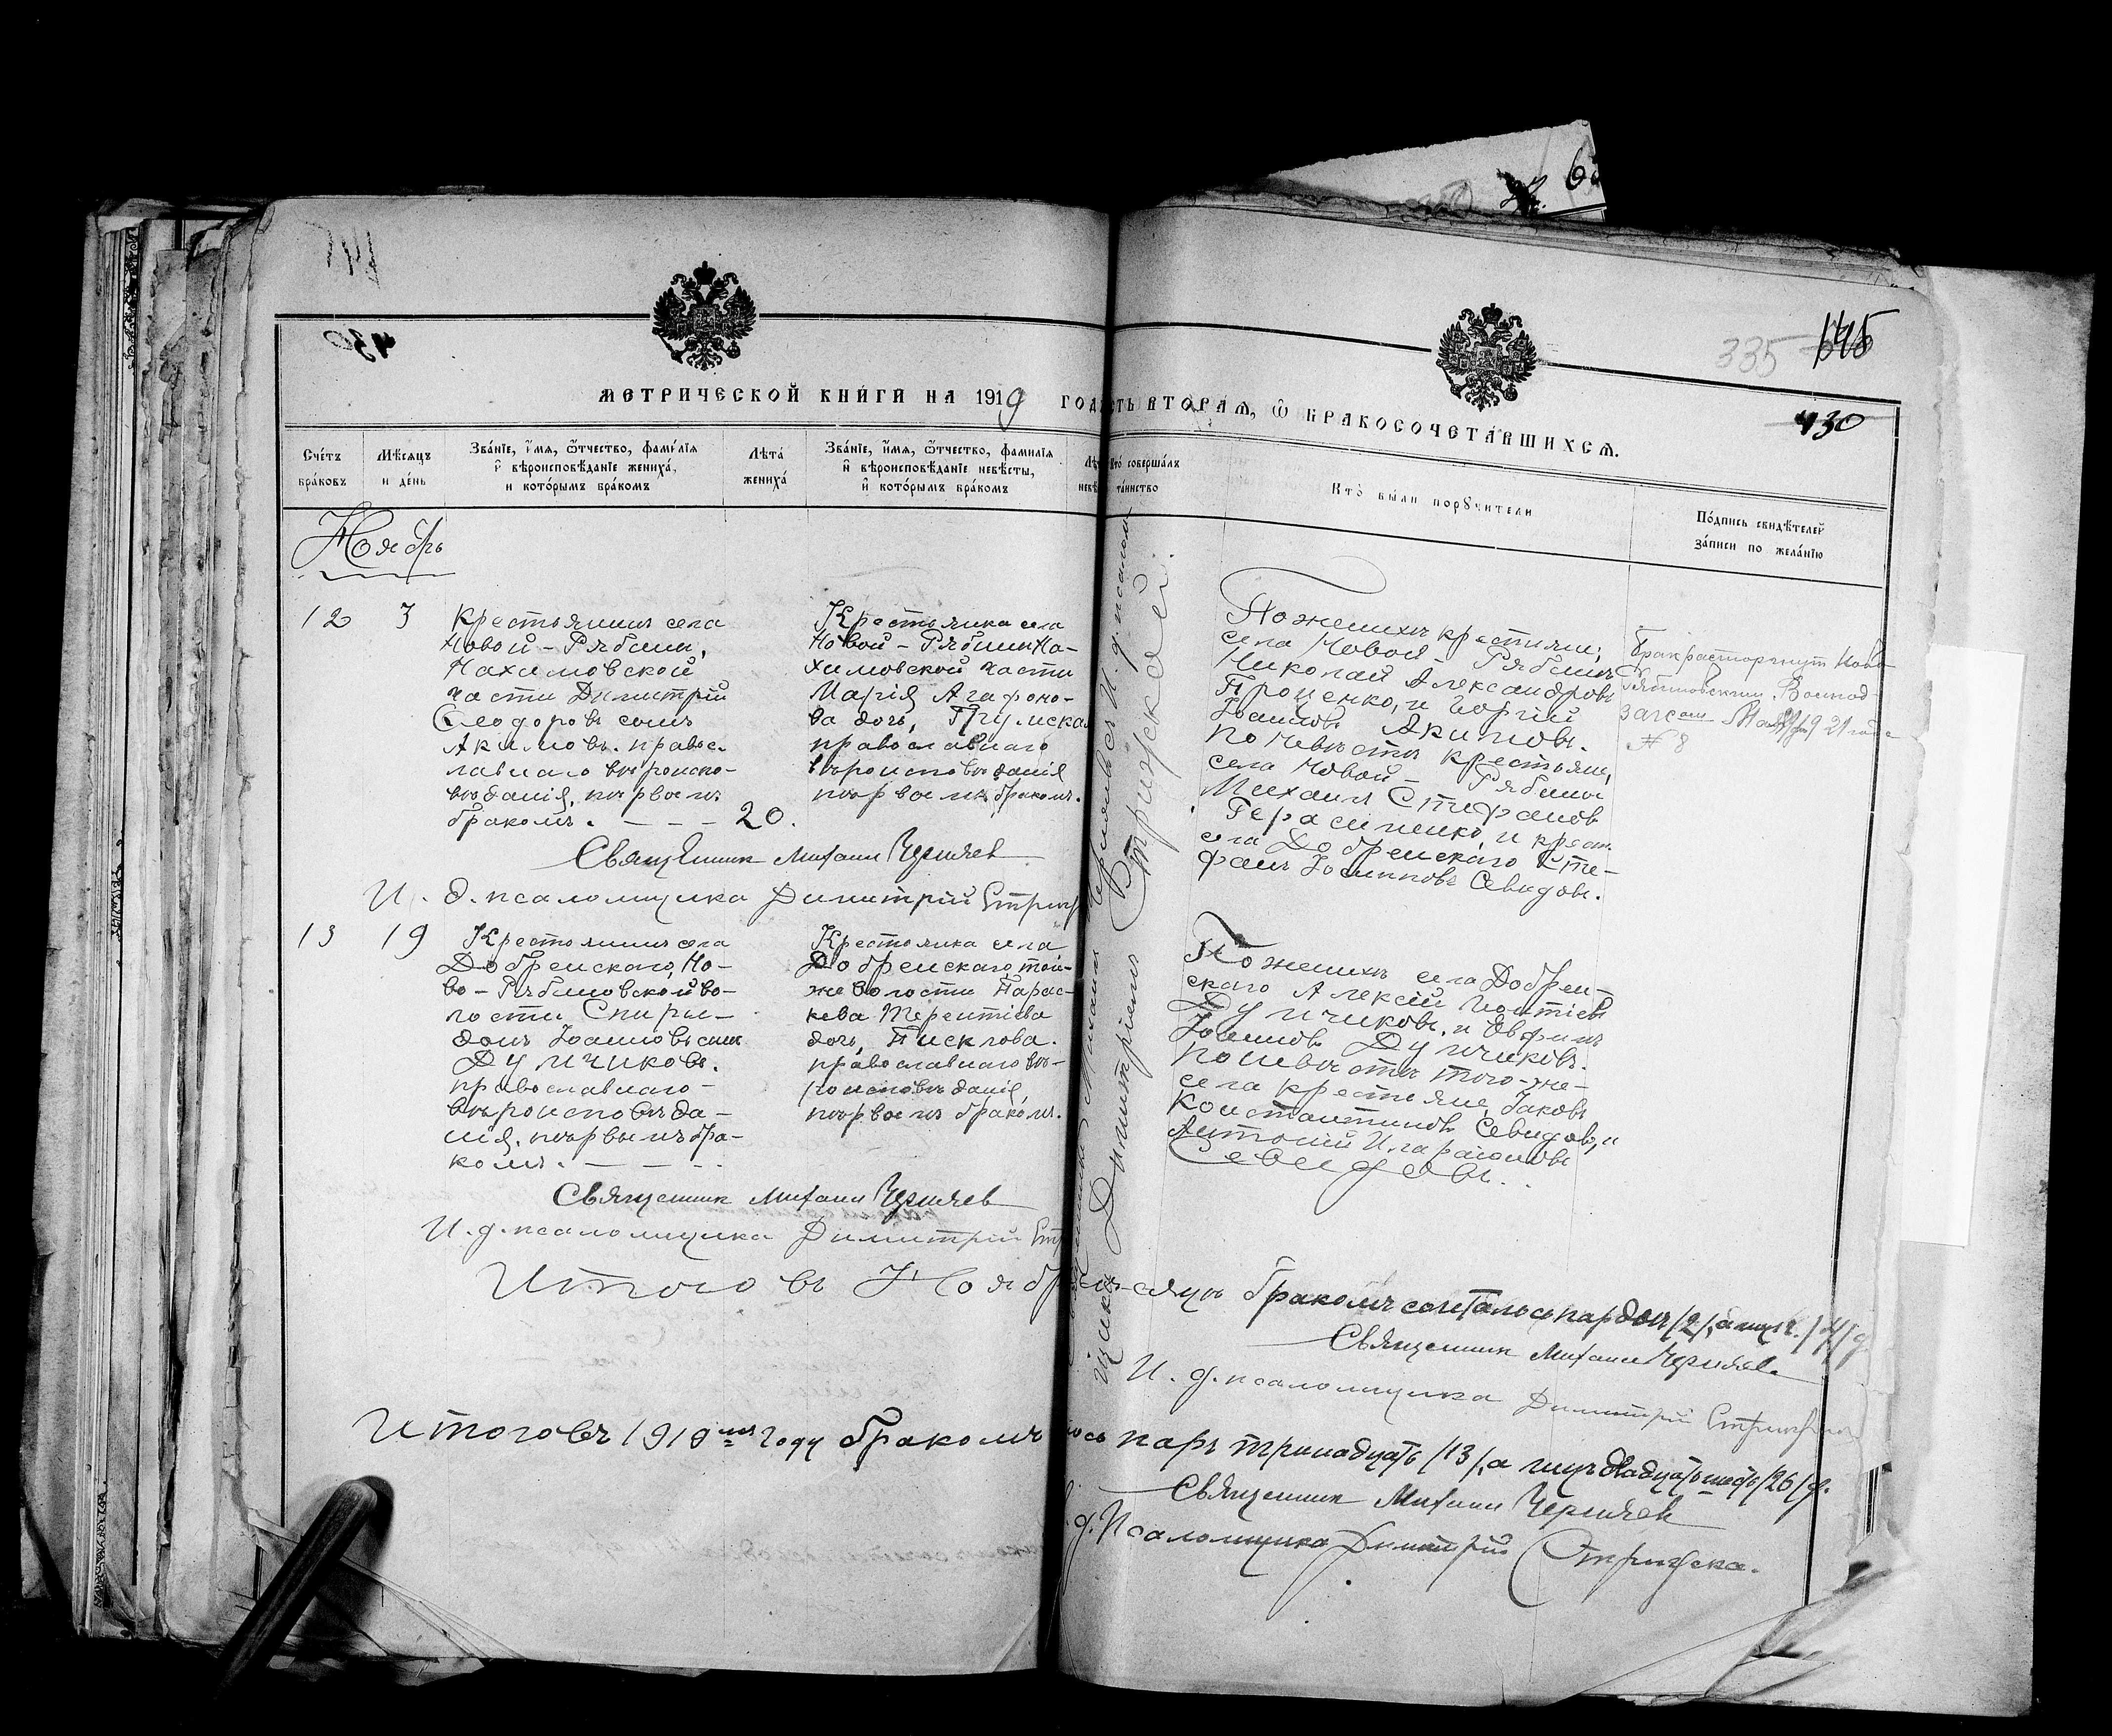 430
335
145
430
МЕТРИЧЕСКОЙ КНИГИ НА 1919 ГОД
СТЬ ВТОРАЯ, Ѿ БРАКОСОЧЕТАВШИХСЯ.
Сче́тъ бра́ковъ
Мѣ́сяцъ и де́нь
Зва́нїе, и́мя, ѻ҆́тчество, фами́лїя и҆ вѣроисповѣ́данїе жениха́, и кото́рымъ бра́комъ
Лѣта́ жениха́
Зва́нїе, и́мя, ѻ҆́тчество, фами́лїя и҆ вѣроисповѣ́данїе невѣ́сты, и҆ кото́рымъ бра́комъ
Кто́ соверша́лъ та́инство
Кто́ бы́ли порꙋчи́тели
По́дпись свидѣ́телей за́писи по жела́нїю
Ноябрь
12
3
Крестьянинъ села
Новой-Рябины,
Нахимовской
части Димитрій
Ѳеодоровъ сынъ
Акимовъ. правос-
лавнаго вѣроиспо-
вѣданія, первымъ
бракомъ. — — — 20.
Крестьянка села
Новой-Рябины На-
химовской части
Марія Агафоно-
ва дочь,
православнаго
вѣроисповѣданія
первымъ бракомъ.
По женихѣ крестьяне,
села Новой - Рябины
Николай Александровъ
Проценко, и
Іоанновъ Акимовъ.
По невѣстѣ крестьяне,
села Новой - Рябины
Михаилъ Стефановъ
Герасименко, и крест.
села Добренскаго Сте-
фанъ Іосифовъ Севидовъ.
Бракъ расторгнут Ново
Рябиновским
1921 года
№ 8
Священник Михаил Черняев
И. д. псаломщика Димитрій
13
19
Крестьянинъ села
Добренскаго, Но-
во-Рябиновской во-
лости Спири-
донъ Іоанновъ сынъ
Думчиковъ.
православнаго-
вѣроисповѣда-
нія, первымъ бра-
комъ. — — —
Крестьянка села
Добренскаго, той-
же волости Парас-
кева Терентіева
дочь, Писклова.
православнаго вѣ-
роисповѣданія,
первымъ бракомъ.
По женихѣ села Добрен-
скаго Алексій
Думчиковъ, и Ефимъ
Іоанновъ Думчиковъ.
По невѣстѣ того-же-
села крестьяне, Іаковъ
Константиновъ Севидовъ, и
Антоній Иларіоновъ
Севидовъ.
Священник Михаил Черняев
И. д. псаломщика Димитрій
Итого въ Ноябрѣ бракомъ сочеталось паръ двѣ /2/, а лицъ
Священник Михаил Черняев.
И. д. псаломщика Димитрій
Итого въ 1919мъ году бракомъ
паръ тринадцать /13/, а лицъ двадцать шесть /26/
Священник Михаил Черняев
д. Псаломщика Димитрій Стрижека.